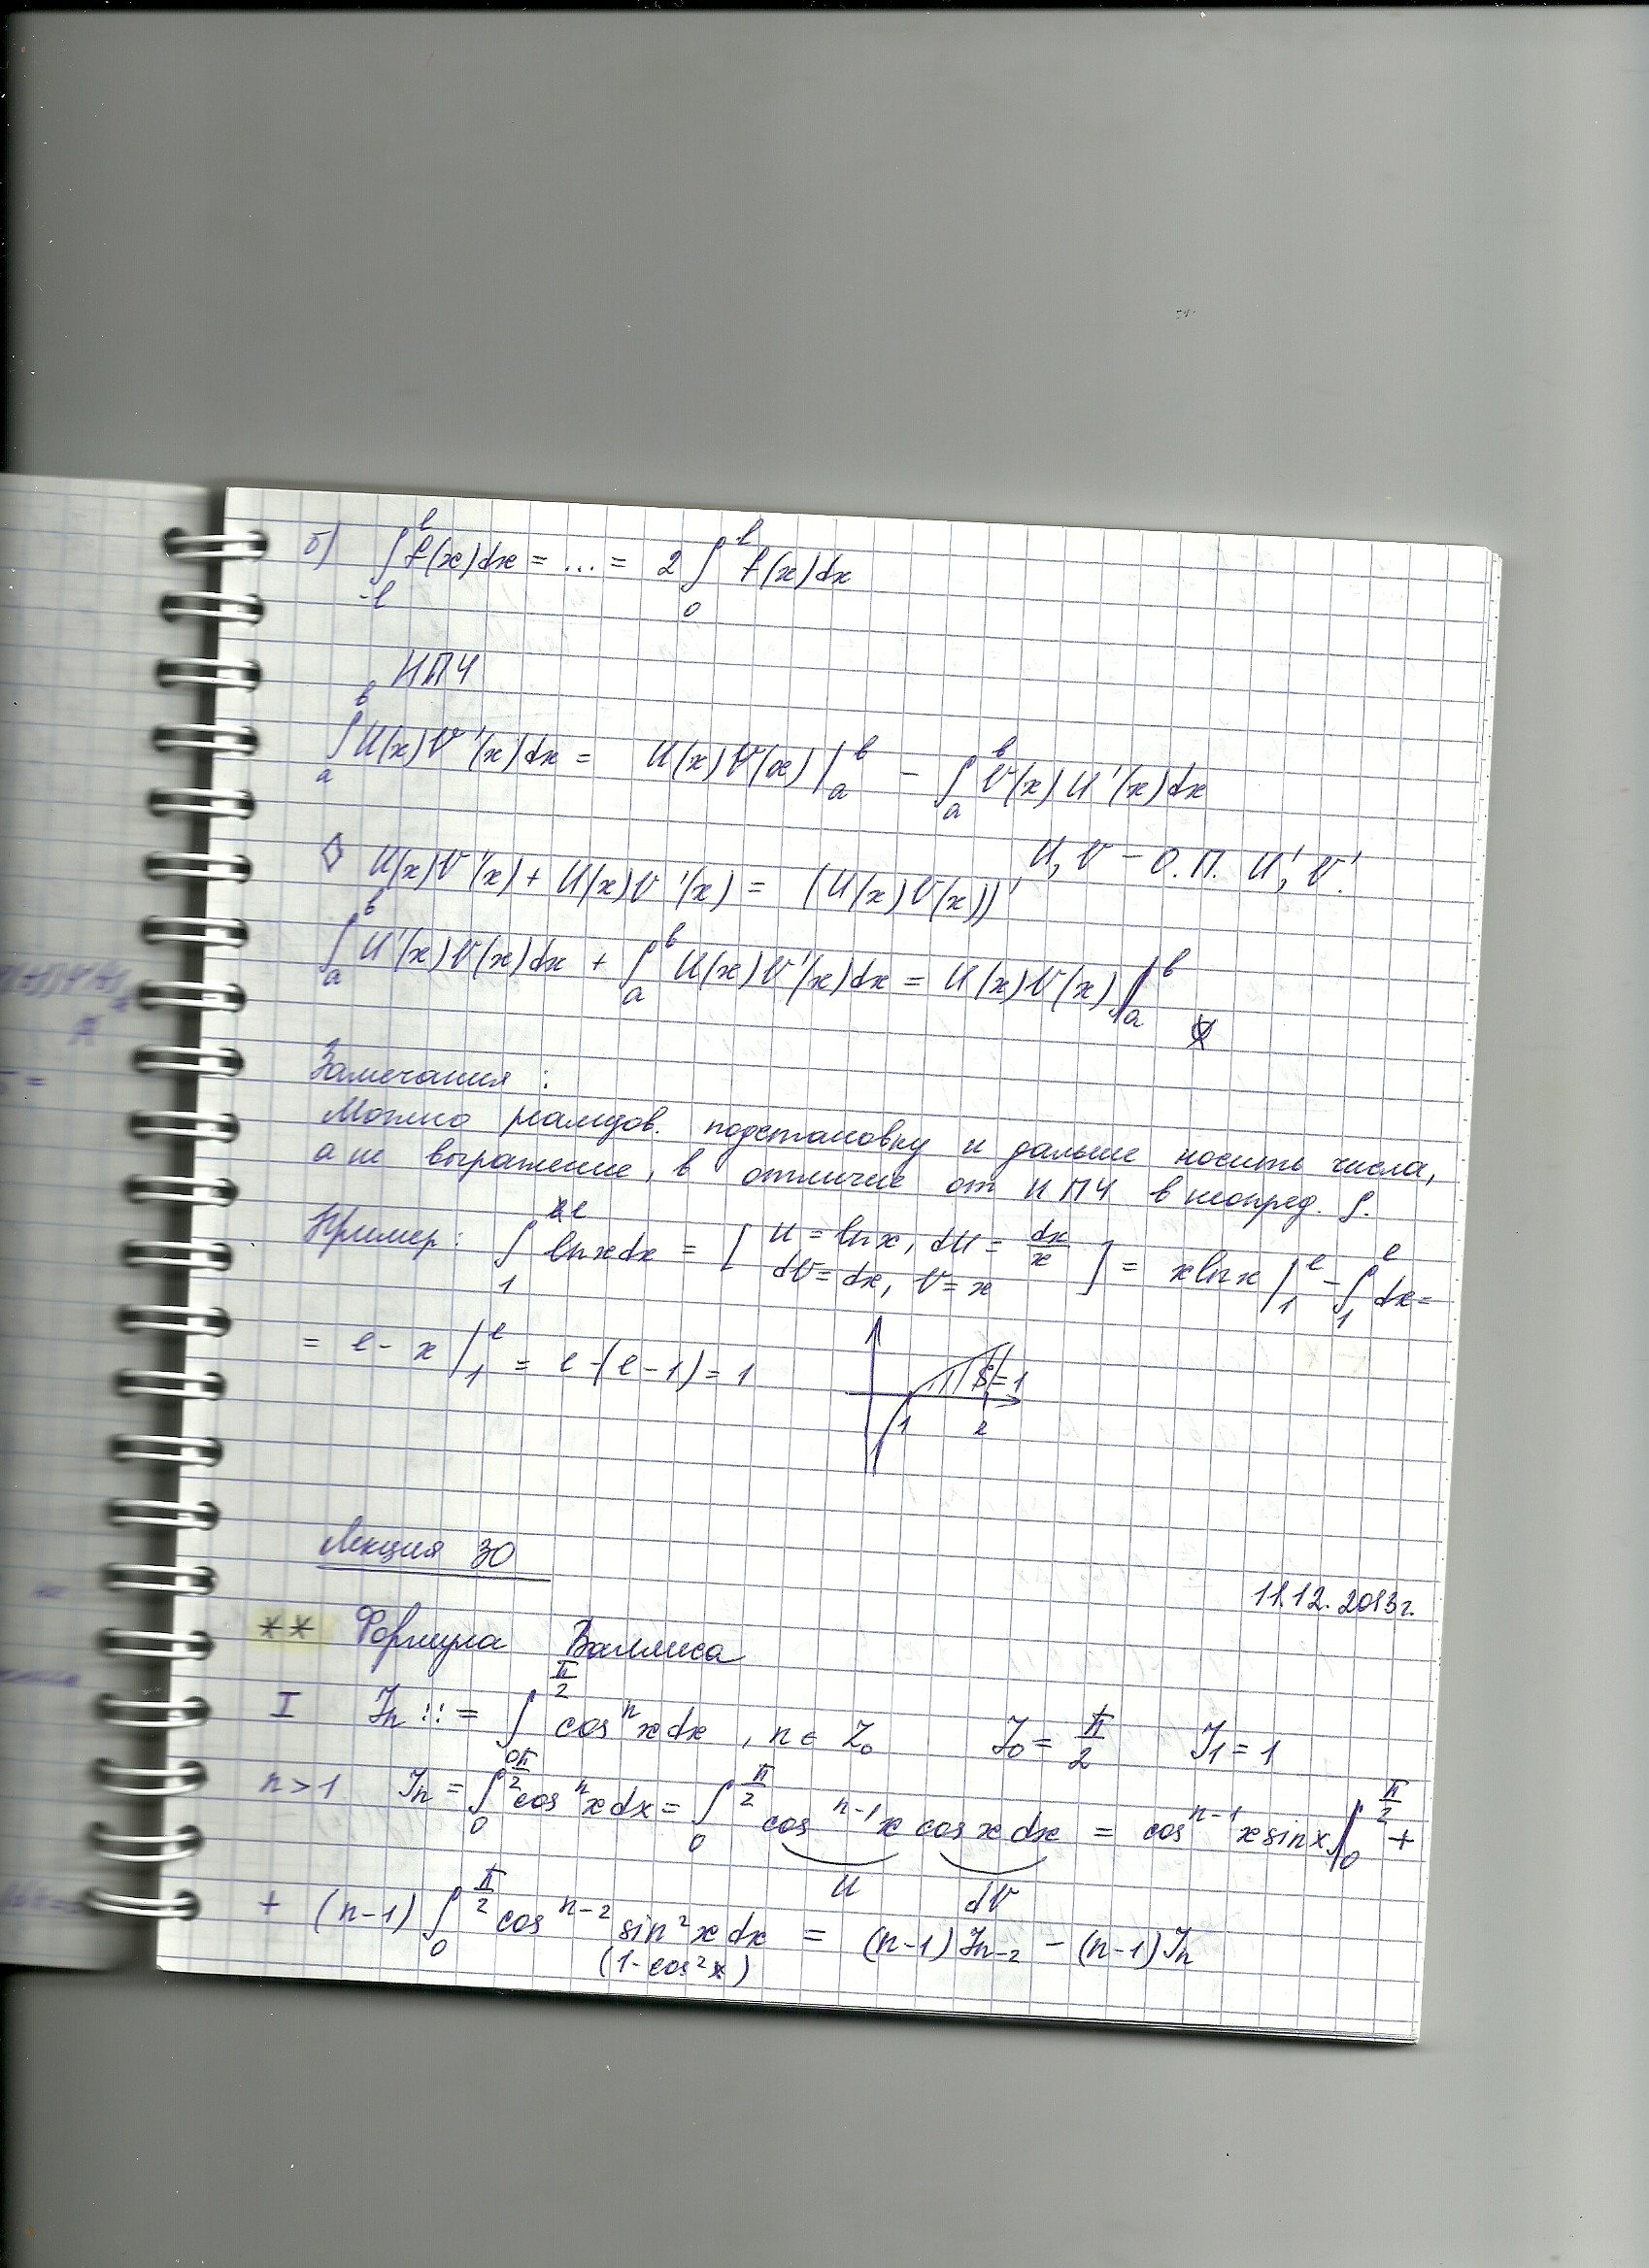 б) ∫_{-l}^{l} f(x)dx = ... = 2∫_{0}^{l} f(x)dx
ИПЧ
∫_{a}^{b} U(x)V'(x)dx = U(x)V(x)|_{a}^{b} - ∫_{a}^{b} V(x)U'(x)dx
U, V - О.П. U', V'.
◊ U(x)V'(x) + U(x)V'(x) = (U(x)V(x))'
∫_{a}^{b} U'(x)V(x)dx + ∫_{a}^{b} U(x)V'(x)dx = U(x)V(x)|_{a}^{b}
Замечания:
Можно подстановку и дальше носить числа,
а не выражение, в отличие от ИПЧ в неопред. ∫.
Пример: ∫_{1}^{e} ln x dx = [U = ln x, dU = dx/x
dV = dx, V = x] = x ln x|_{1}^{e} - ∫_{1}^{e} dx =
= e - x|_{1}^{e} = e - (e - 1) = 1
S = 1
1 e
Лекция 30
11.12.2013г.
** Формула Валлиса
I J_n ::= ∫_{0}^{π/2} cos^n x dx, n ∈ Z_0 J_0 = π/2 J_1 = 1
n > 1 J_n = ∫_{0}^{π/2} cos^n x dx = ∫_{0}^{π/2} cos^{n-1} x cos x dx = cos^{n-1} x sin x|_{0}^{π/2} +
U dV
+ (n-1) ∫_{0}^{π/2} cos^{n-2} sin^2 x dx = (n-1)J_{n-2} - (n-1)J_n
(1 - cos^2 x)